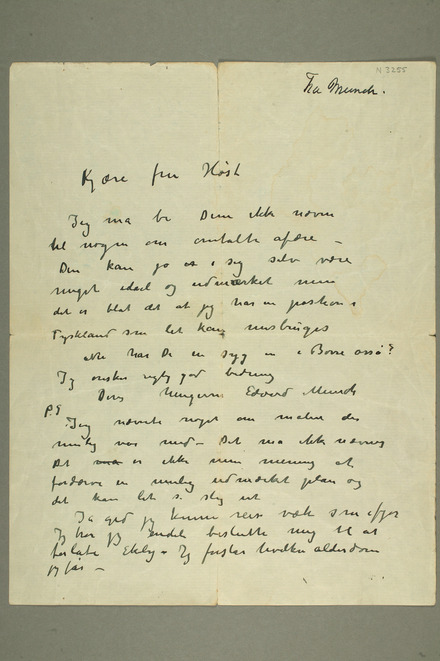 N 3255
Fra Munch.
Kjære fru Høst
Jeg må be Dem ikke nævne
til nogen om omtalte afære –
Den kan jo os i sig selv være
meget ideel og udmærket men
det er blot det at jeg har en position i
Tyskland som let kan misbruges
har De en syg en i Borre også?
Jeg ønsker rigtig god bedring
Deres hengivne Edvard Munch
P.S
Jeg nævnte noget om malere der
mulig var med – Det må ikke nævnes
Det må er ikke min mening at
fordærve en mulig udmærket plan og
det kan let se slig ut
Ja gid jeg kunne reise væk som ifjor
Jeg har jo endelig besluttet mig til at
forlate Ekely – Jeg hvilken alderdom
jeg får –